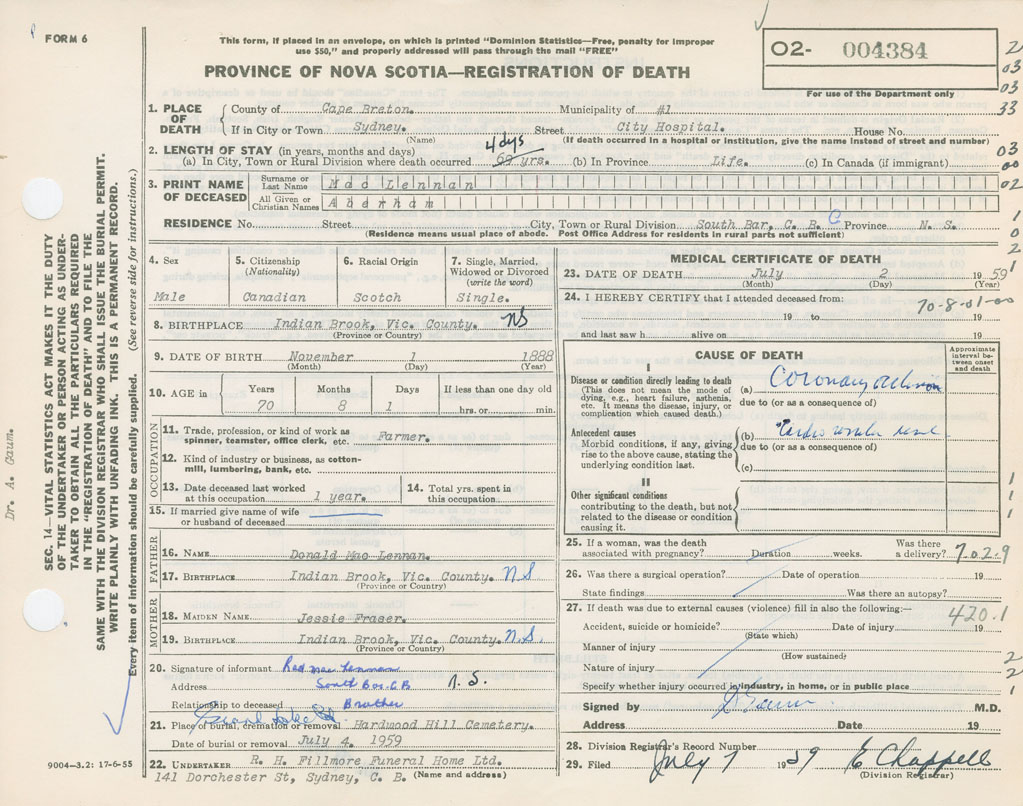 FORM 6
This form, if placed in an envelope, on which is printed "Dominion Statistics—Free, penalty for improper
use $50," and properly addressed will pass through the mail "FREE"
PROVINCE OF NOVA SCOTIA—REGISTRATION OF DEATH
02- 004384
For use of the Department only
2
03
03
33
03
00
02
1
0
2
1
1. PLACE OF DEATH
County of Cape Breton. Municipality of #1
If in City or Town Sydney. Street City Hospital. House No.
(Name) (If death occurred in a hospital or institution, give the name instead of street and number)
2. LENGTH OF STAY (in years, months and days)
4 dys
(a) In City, Town or Rural Division where death occurred 69 yrs. (b) In Province Life. (c) In Canada (if immigrant)
3. PRINT NAME OF DECEASED
Surname or Last Name Mac Lennan
All Given or Christian Names Aberham
RESIDENCE No. Street City, Town or Rural Division South Bar, C. B. C Province N. S.
(Residence means usual place of abode. Post Office Address for residents in rural parts not sufficient)
4. Sex
Male
5. Citizenship
(Nationality)
Canadian
6. Racial Origin
Scotch
7. Single, Married,
Widowed or Divorced
(write the word)
Single.
8. BIRTHPLACE Indian Brook, Vic. County. NS
(Province or Country)
9. DATE OF BIRTH November 1 1888
(Month) (Day) (Year)
10. AGE in
Years Months Days If less than one day old
70 8 1 hrs. or min.
OCCUPATION
11. Trade, profession, or kind of work as
spinner, teamster, office clerk, etc. Farmer.
12. Kind of industry or business, as cotton-
mill, lumbering, bank, etc.
13. Date deceased last worked
at this occupation 1 year.
14. Total yrs. spent in
this occupation
15. If married give name of wife
or husband of deceased
FATHER
16. NAME Donald Mac Lennan.
17. BIRTHPLACE Indian Brook, Vic. County. NS
(Province or Country)
MOTHER
18. MAIDEN NAME Jessie Fraser.
19. BIRTHPLACE Indian Brook, Vic. County. N.S.
(Province or Country)
20. Signature of informant Mac Lennan
Address South Bar C.B. N.S.
Relationship to deceased Brother
Grand Lake Rd
21. Place of burial, cremation or removal Hardwood Hill Cemetery.
Date of burial or removal July 4. 1959
22. UNDERTAKER R. H. Fillmore Funeral Home Ltd.
141 Dorchester St, Sydney, C. B. (Name and address)
MEDICAL CERTIFICATE OF DEATH
23. DATE OF DEATH July 2 1959
(Month) (Day) (Year)
24. I HEREBY CERTIFY that I attended deceased from:
70-8-01-00
19 to 19
and last saw h alive on 19
CAUSE OF DEATH
Approximate
interval be-
tween onset
and death
I
Disease or condition directly leading to death
(This does not mean the mode of
dying, e.g., heart failure, asthenia,
etc. It means the disease, injury, or
complication which caused death.)
(a) Coronary occlusion
due to (or as a consequence of)
Antecedent causes
Morbid conditions, if any, giving
rise to the above cause, stating the
underlying condition last.
(b)
due to (or as a consequence of)
(c)
II
Other significant conditions
contributing to the death, but not
related to the disease or condition
causing it.
1
1
1
25. If a woman, was the death
associated with pregnancy? Duration weeks. Was there
a delivery?
7.02.9
26. Was there a surgical operation? Date of operation 19
State findings Was there an autopsy?
27. If death was due to external causes (violence) fill in also the following:—
420.1
Accident, suicide or homicide? Date of injury 19
(State which)
Manner of injury
(How sustained)
Nature of injury
Specify whether injury occurred in industry, in home, or in public place
2
2
1
Signed by A Gaum M.D.
Address Date 19
28. Division Registrar's Record Number
29. Filed July 7 1959 E Chappell
(Division Registrar)
Dr. A. Gaum.
SEC. 14—VITAL STATISTICS ACT MAKES IT THE DUTY
OF THE UNDERTAKER OR PERSON ACTING AS UNDER-
TAKER TO OBTAIN ALL THE PARTICULARS REQUIRED
IN THE "REGISTRATION OF DEATH" AND TO FILE THE
SAME WITH THE DIVISION REGISTRAR WHO SHALL ISSUE THE BURIAL PERMIT.
WRITE PLAINLY WITH UNFADING INK. THIS IS A PERMANENT RECORD.
Every item of information should be carefully supplied. (See reverse side for instructions.)
9004—3.2: 17-6-55